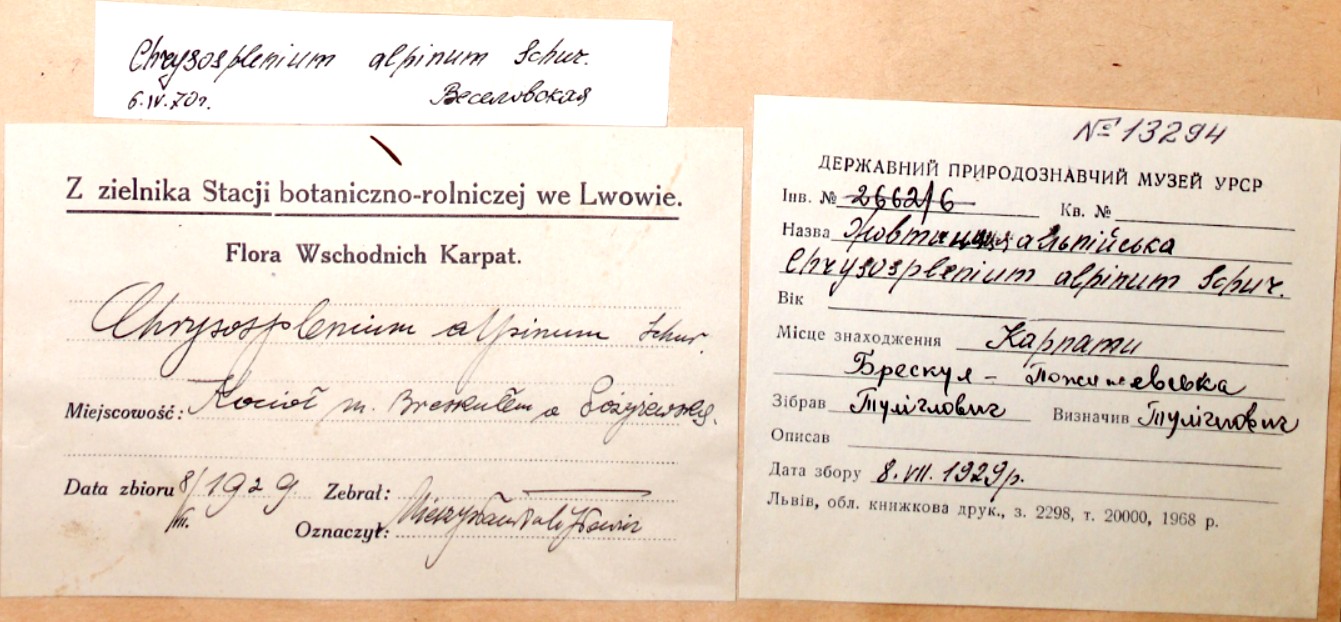 Chrysosplenium alpinum Schur.
6.IV.70г. Веселовская
Z zielnika Stacji botaniczno-rolniczej we Lwowie.
Flora Wschodnich Karpat.
Chrysosplenium alpinum Schur.
Miejscowość: Kocioł m. Breskułem a Pożyżewską.
Data zbioru 8/VII. 1929 Zebrał:
Oznaczył:
№ 13294
ДЕРЖАВНИЙ ПРИРОДОЗНАВЧИЙ МУЗЕЙ УРСР
Інв. № 2662/6 Кв. №
Назва Жовтяниця альпійська
Chrysosplenium alpinum Schur.
Вік
Місце знаходження Карпати
Брескул - Пожижевська
Зібрав Туліглович Визначив Туліглович
Описав
Дата збору 8.VII.1929р.
Львів, обл. книжкова друк., з. 2298, т. 20000, 1968 р.